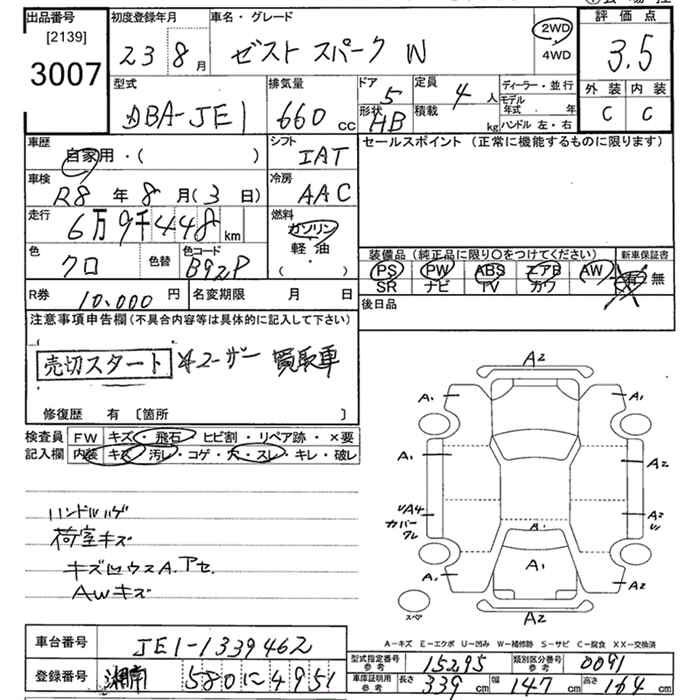 出品番号 初度登録年月 車名・グレード 評価点
[2139]
3007 23 8月 ゼスト スパーク W 2WD 4WD 3.5
型式 排気量 ドア 定員 ディーラー・並行 外装 内装
DBA-JE1 660cc 5 4人 モデル年式 年 C C
形状 HB 積載 kg ハンドル 左・右
車歴 自家用・( ) シフト IAT セールスポイント (正常に機能するものに限ります)
車検 R8年8月(3日) 冷房 AAC
走行 6万9千448km 燃料 ガソリン
軽油
( ・ )
色 クロ 色替 色コード B92P 装備品 (純正品に限り○をつけてください) 新車保証書
PS PW ABS エアB AW 有 無
SR ナビ TV カワ
R券 10,000円 名変期限 月 日 後日品
注意事項申告欄(不具合内容等は具体的に記入して下さい)
売切スタート ユーザー 買取車
修復歴 有 〔箇所 〕
検査員 FW キズ・飛石・ヒビ割・リペア跡・×要
記入欄 内装 キズ・汚レ・コゲ・穴・スレ・キレ・破レ
ハンドルハゲ
荷室キズ
キズ凹ウスA.アセ
AWキズ
A2
A1 A1
A1 A2
A4 A2
カバー
ワレ
A1
A1
A1 A2
スペア A2
A-キズ E-エクボ U-凹み W-補修跡 S-サビ C-腐食 XX-交換済
車台番号 JE1-1339462
登録番号 湘南 580 に 4951
型式指定番号 参考 15295 類別区分番号 参考 0091
車庫証明用 参考 長さ 339cm 幅 147cm 高さ 164cm